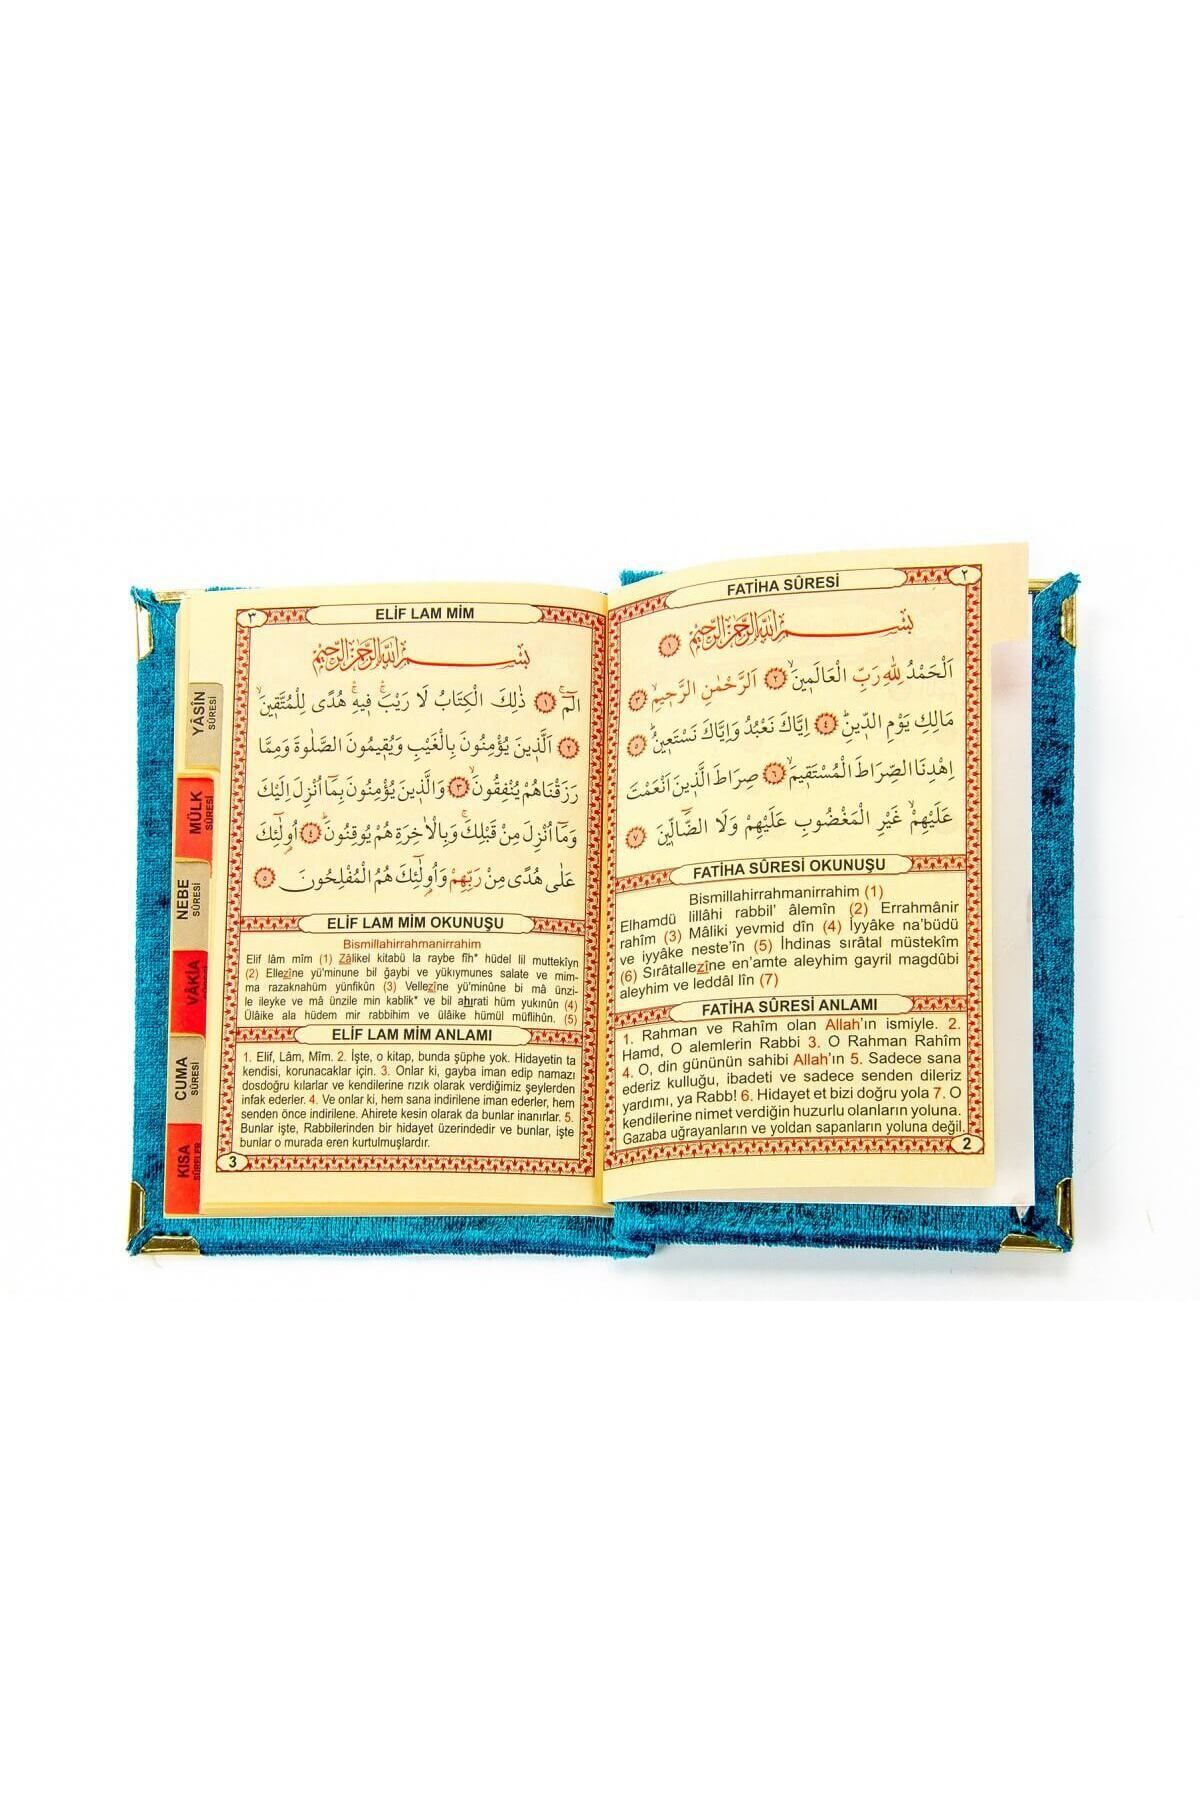 FATİHA SÛRESİ
٢
بِسْمِ اللّٰهِ الرَّحْمٰنِ الرَّحِيمِ ١
اَلْحَمْدُ لِلّٰهِ رَبِّ الْعَالَمِينَۙ ٢ اَلرَّحْمٰنِ الرَّحِيمِۙ ٣
مَالِكِ يَوْمِ الدِّينِۜ ٤ اِيَّاكَ نَعْبُدُ وَاِيَّاكَ نَسْتَعِينُۜ ٥
اِهْدِنَا الصِّرَاطَ الْمُسْتَقِيمَۙ ٦ صِرَاطَ الَّذِينَ اَنْعَمْتَ
عَلَيْهِمْۙ غَيْرِ الْمَغْضُوبِ عَلَيْهِمْ وَلَا الضَّٓالِّينَ ٧
FATİHA SÛRESİ OKUNUŞU
Bismillahirrahmanirrahim (1)
Elhamdü lillâhi rabbil' âlemîn (2) Errahmânir
rahîm (3) Mâliki yevmid dîn (4) İyyâke na'büdü
ve iyyâke neste'în (5) İhdinas sırâtal müstekîm
(6) Sırâtallezîne en'amte aleyhim gayril magdûbi
aleyhim ve leddâl lîn (7)
FATİHA SÛRESİ ANLAMI
1. Rahman ve Rahîm olan Allah'ın ismiyle. 2.
Hamd, O alemlerin Rabbi 3. O Rahman Rahîm
4. O, din gününün sahibi Allah'ın 5. Sadece sana
ederiz kulluğu, ibadeti ve sadece senden dileriz
yardımı, ya Rabb! 6. Hidayet et bizi doğru yola 7. O
kendilerine nimet verdiğin huzurlu olanların yoluna.
Gazaba uğrayanların ve yoldan sapanların yoluna değil.
2
٣
ELİF LAM MİM
بِسْمِ اللّٰهِ الرَّحْمٰنِ الرَّحِيمِ
الٓمٓۚ ١ ذٰلِكَ الْكِتَابُ لَا رَيْبَۚ فِيهِۚ هُدًى لِلْمُتَّقِينَۙ
٢ اَلَّذِينَ يُؤْمِنُونَ بِالْغَيْبِ وَيُقِيمُونَ الصَّلٰوةَ وَمِمَّا
رَزَقْنَاهُمْ يُنْفِقُونَۙ ٣ وَالَّذِينَ يُؤْمِنُونَ بِمَٓا اُنْزِلَ اِلَيْكَ
وَمَٓا اُنْزِلَ مِنْ قَبْلِكَۚ وَبِالْاٰخِرَةِ هُمْ يُوقِنُونَۜ ٤ اُو۬لٰٓئِكَ
عَلٰى هُدًى مِنْ رَبِّهِمْ وَاُو۬لٰٓئِكَ هُمُ الْمُفْلِحُونَ ٥
ELİF LAM MİM OKUNUŞU
Bismillahirrahmanirrahim
Elif lâm mîm (1) Zâlikel kitabü la raybe fîh* hüdel lil muttekîyn
(2) Ellezîne yü'minune bil ğaybi ve yükıymunes salate ve mim-
ma razaknahüm yünfikûn (3) Vellezîne yü'minûne bi mâ ünzi-
le ileyke ve mâ ünzile min kablik* ve bil ahırati hüm yukınûn (4)
Ülâike ala hüdem mir rabbihim ve ülâike hümül müflihûn. (5)
ELİF LAM MİM ANLAMI
1. Elif, Lâm, Mîm. 2. İşte, o kitap, bunda şüphe yok. Hidayetin ta
kendisi, korunacaklar için. 3. Onlar ki, gayba iman edip namazı
dosdoğru kılarlar ve kendilerine rızık olarak verdiğimiz şeylerden
infak ederler. 4. Ve onlar ki, hem sana indirilene iman ederler, hem
senden önce indirilene. Ahirete kesin olarak da bunlar inanırlar. 5.
Bunlar işte, Rabbilerinden bir hidayet üzerindedir ve bunlar, işte
bunlar o murada eren kurtulmuşlardır.
3
YÂSÎN
SÛRESİ
MÜLK
SÛRESİ
NEBE
SÛRESİ
VÂKİA
CUMA
SÛRESİ
KISA
SÛRELER